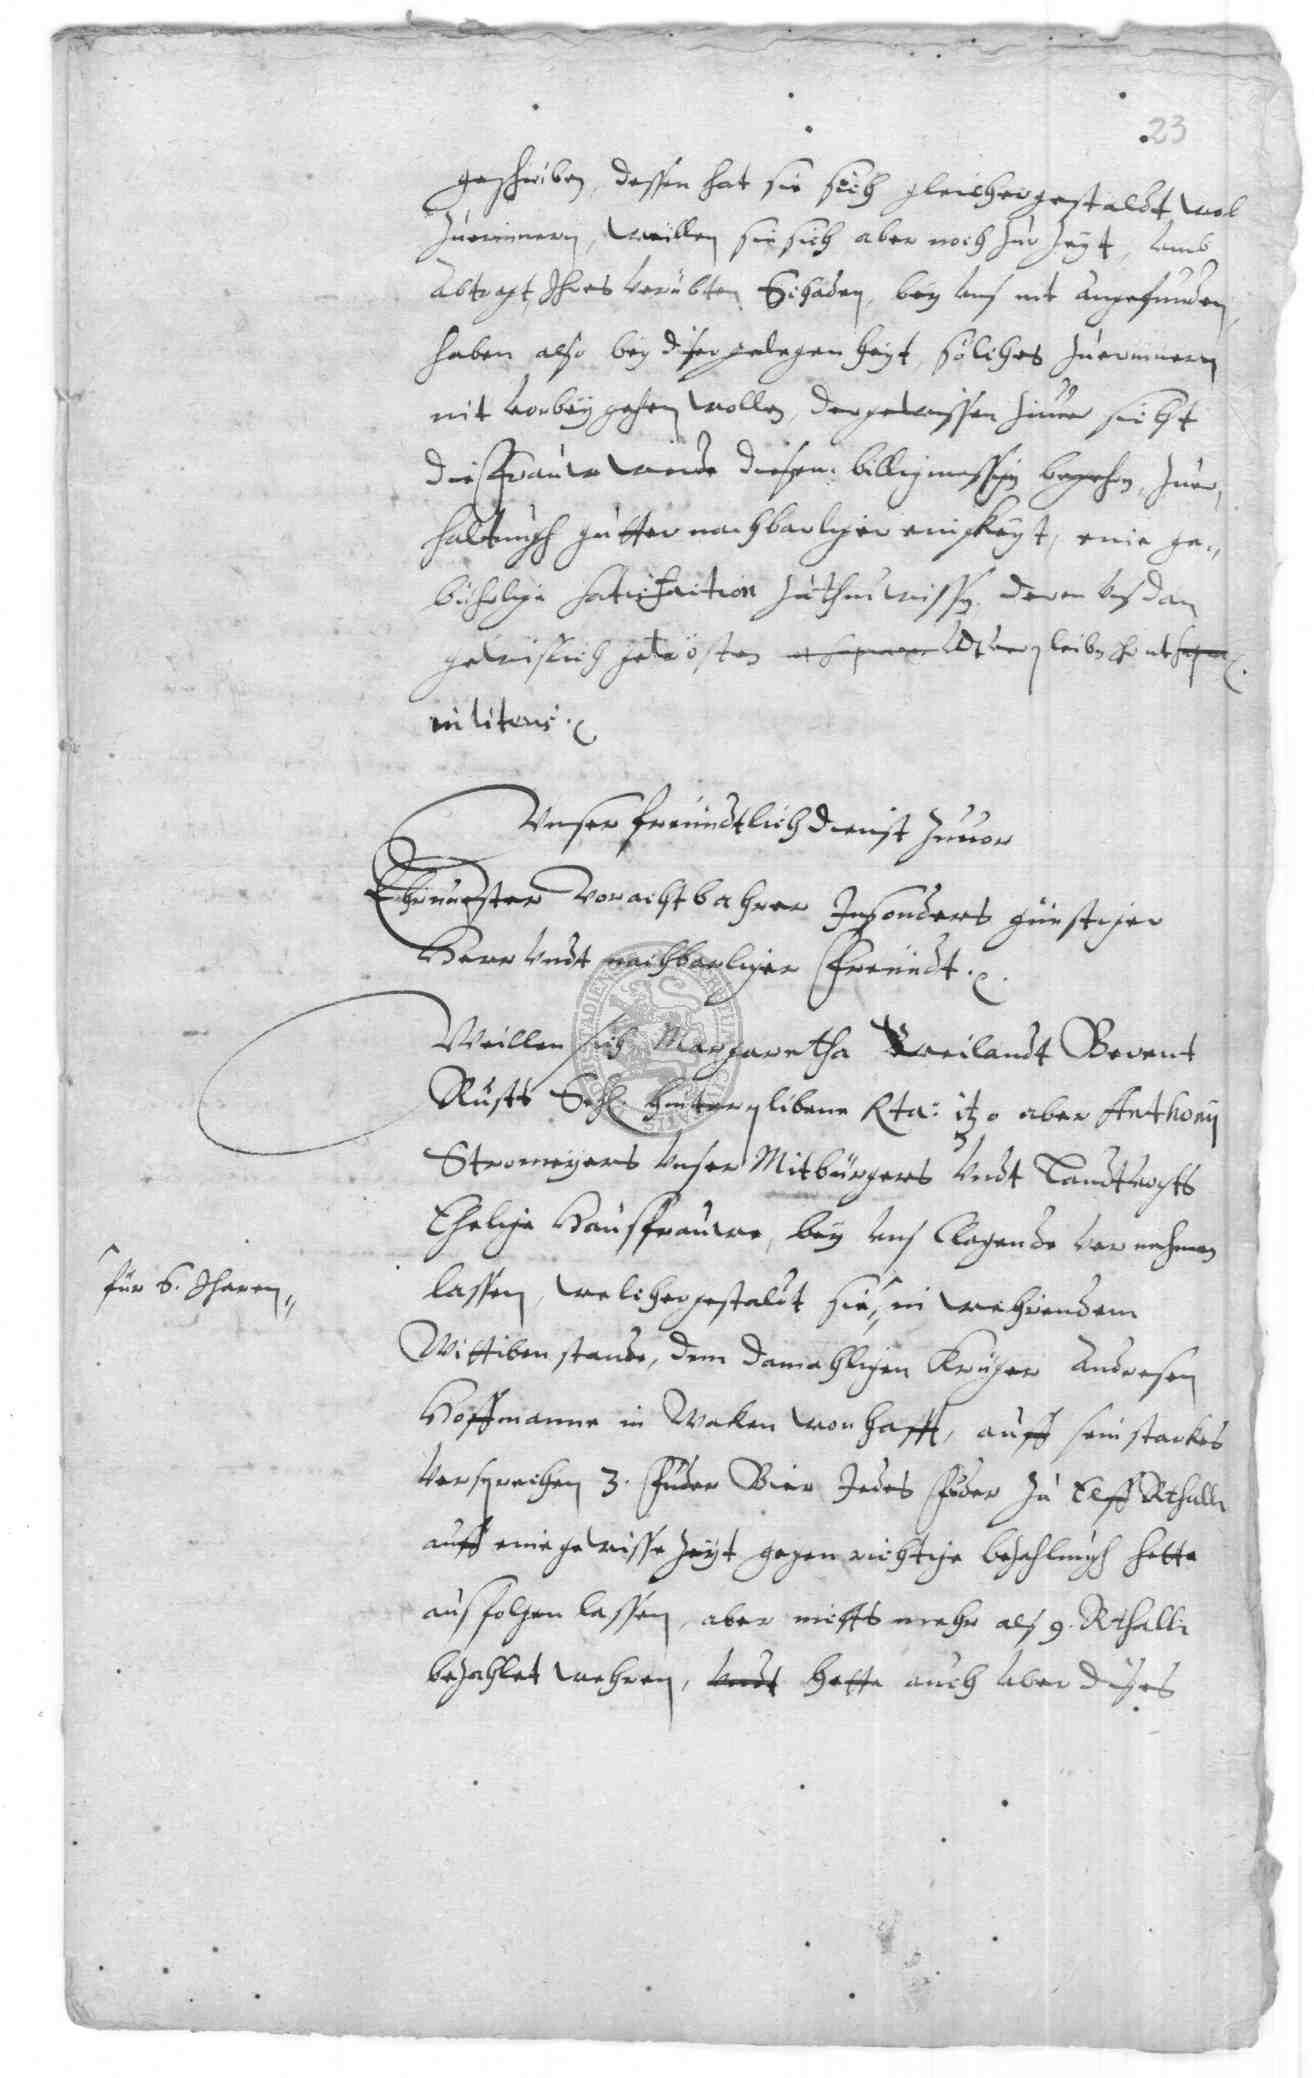 23
geschriben, dessen hat sie sich gleichergestaldt wol
Zuerinnern, weillen sie sich aber noch zur Zeyt, umb
Abtragt Ihres verübten Schaden, bey uns nit angefunden,
haben also bey diser gelegenheyt, solches Zuerinnern
nit vorbey gehen wollen, der gewissen
die Fraue werde diesem billigmessigen begehren, zuer,
haltungh gutter nachbarliger einigkeyt, eine ge,,
bührlige satisfaction zuthun wissen, deren uns dan
gewisslich getrösten
ut literis.
Unser freundtlich dienst Zuuor
Ehrnuester Vorachtbahrer Insonders günstiger
Herr undt nachbarliger Freundt.
Weillen sich Margaretha weilandt Berent
Rusts Sehl. hinterplibene Rta: itzo aber Anthonij
Stromeyers unsers Mitbürgers undt Landtvogts
Ehelige Hausfrauwe, bey uns Clagende vernehmen
lassen, welichergestaldt sie, in wehrendem
für 6. Jharen,,
Wittibenstande, dem damahligen Krüger Andresen
Hoffmanne in Waken wonhafft, auff sein starkes
versprechen 3. Fuder Bier Jedes Fuder zu Elff Rthall:
auff eine gewisse Zeyt gegen richtige bezahlungh hette
ausfolgen lassen, aber nichts mehr als 9. Rthall:
bezahlet wehren, undt hette auch uber dises